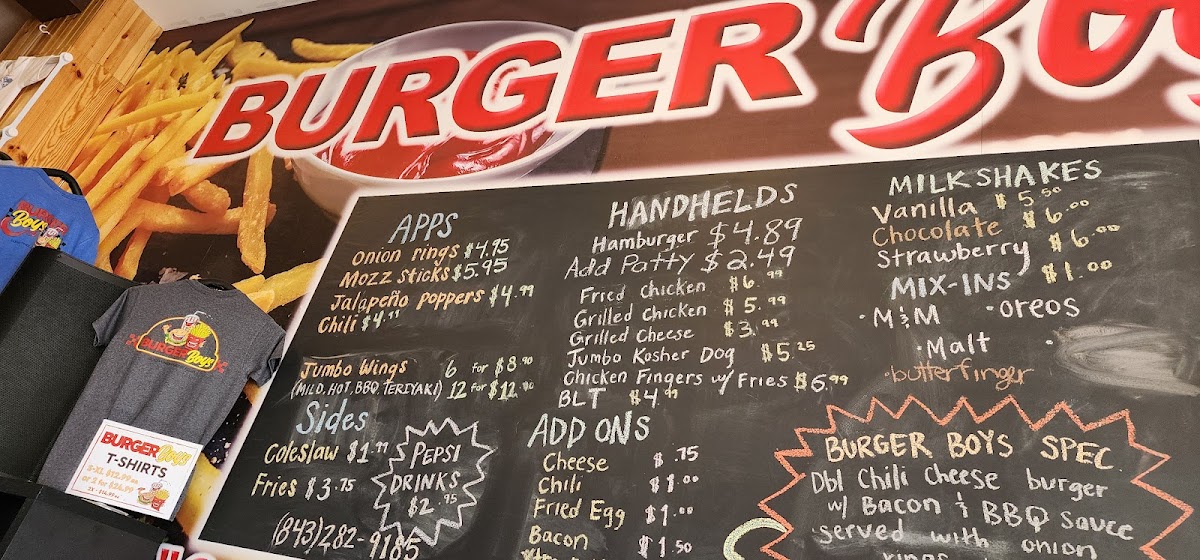 BURGER Boys
BURGER
Boys
BURGER Boys
BURGER Boys
T-SHIRTS
S-XL $12.99 ea
or 2 for $24.99
APPS
Onion rings $4.95
Mozz Sticks $5.95
Jalapeño poppers $4.99
Chili $4.
Jumbo Wings 6 for $8.90
(MILD, HOT, BBQ, TERIYAKI) 12 for $12.
Sides
Coleslaw $1.
Fries $3.75
PEPSI
DRINKS
$2.95
(843)282-9185
HANDHELDS
Hamburger $4.89
Add Patty $2.49
Fried Chicken $6.99
Grilled Chicken $5.99
Grilled Cheese $3.99
Jumbo Kosher Dog $5.25
Chicken Fingers w/ Fries $6.99
BLT $4.99
ADD ONS
Cheese $.75
Chili $1.00
Fried Egg $1.00
Bacon $1.50
MILKSHAKES
Vanilla $5.50
Chocolate $6.00
Strawberry $6.00
MIX-INS $1.00
·M&M ·Oreos
·Malt ·
·butterfinger
BURGER BOYS SPEC.
Dbl Chili Cheese burger
w/ Bacon & BBQ Sauce
served with onion
rings